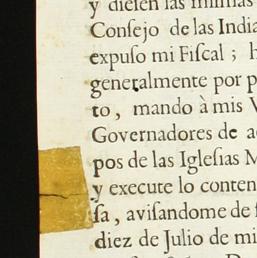 y dieſen las miſmas
Conſejo de las India
expuſo mi Fiſcal ; h
generalmente por p
to , mando à mis V
Governadores de a
pos de las Igleſias M
y execute lo conten
ſa , aviſandome de ſ
diez de Julio de mi